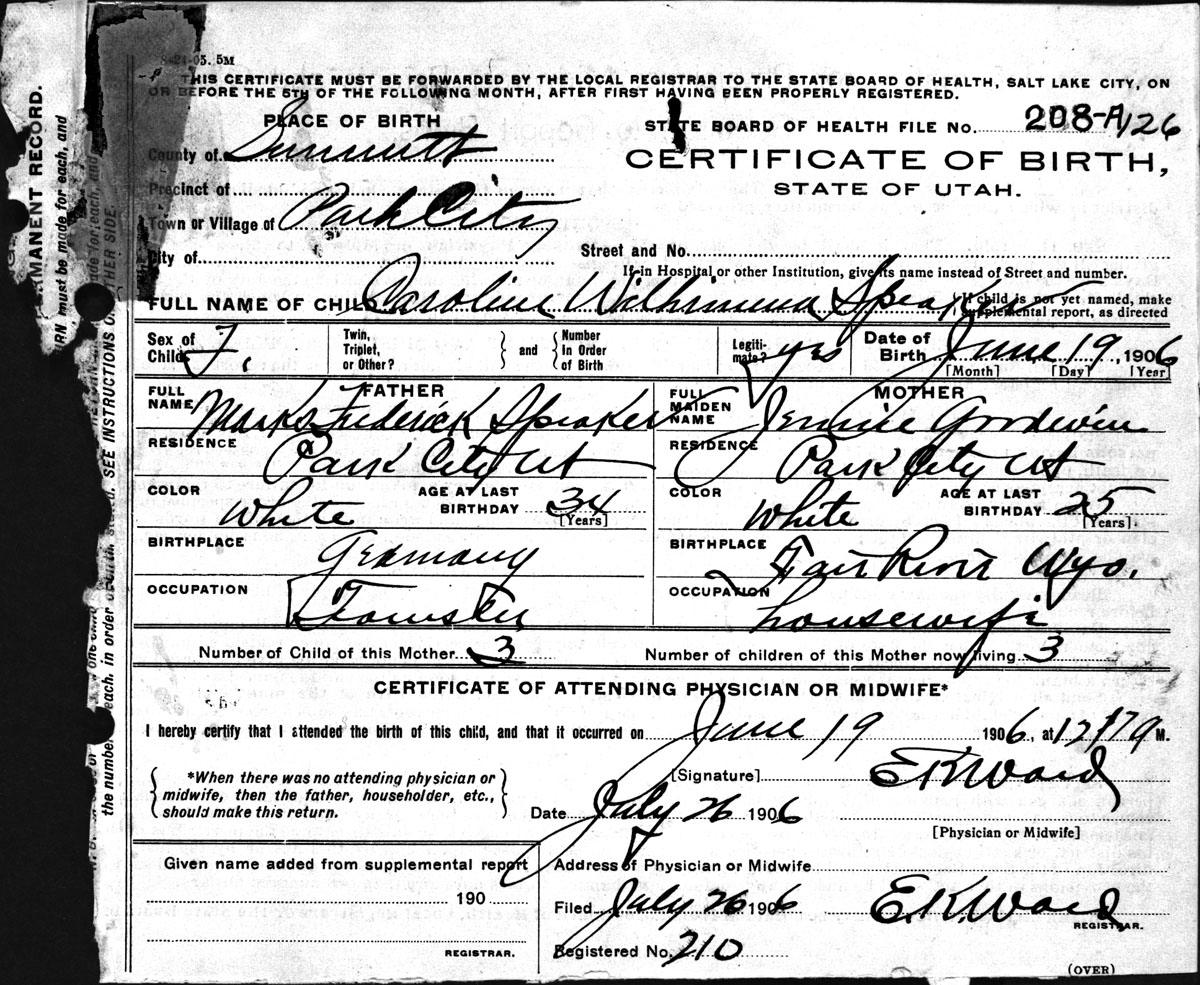 8-24-05. 5M
THIS CERTIFICATE MUST BE FORWARDED BY THE LOCAL REGISTRAR TO THE STATE BOARD OF HEALTH, SALT LAKE CITY, ON
OR BEFORE THE 5TH OF THE FOLLOWING MONTH, AFTER FIRST HAVING BEEN PROPERLY REGISTERED.
PLACE OF BIRTH
County of Summitt
Precinct of
Town or Village of Park City
City of
STATE BOARD OF HEALTH FILE No. 208-A/126
CERTIFICATE OF BIRTH,
STATE OF UTAH.
Street and No.
If in Hospital or other Institution, give its name instead of Street and number.
FULL NAME OF CHILD Caroline Wilhimena Speaker
If child is not yet named, make
supplemental report, as directed
Sex of Child F.
Twin, Triplet, or Other?
and
Number in Order of Birth
Legitimate? yes
Date of Birth June 19, 1906
[Month] [Day] [Year]
FATHER
FULL NAME Marks Frederick Speaker
RESIDENCE Park City Ut
COLOR White
AGE AT LAST BIRTHDAY 34
[Years]
BIRTHPLACE Germany
OCCUPATION
MOTHER
FULL MAIDEN NAME Jennie Goodwin
RESIDENCE Park City Ut
COLOR White
AGE AT LAST BIRTHDAY 25
[Years]
BIRTHPLACE River Wyo.
OCCUPATION housewife
Number of Child of this Mother 3
Number of children of this Mother now living 3
CERTIFICATE OF ATTENDING PHYSICIAN OR MIDWIFE*
I hereby certify that I attended the birth of this child, and that it occurred on June 19 1906, at M.
*When there was no attending physician or
midwife, then the father, householder, etc.,
should make this return.
[Signature] E K Ward
Date July 26 1906
[Physician or Midwife]
Given name added from supplemental report
190
REGISTRAR.
Address of Physician or Midwife
Filed July 26 1906 E. K. Ward
REGISTRAR.
Registered No. 210
(OVER)
MANENT RECORD.
RN must be made for each, and
SEE INSTRUCTIONS O
THER SIDE.